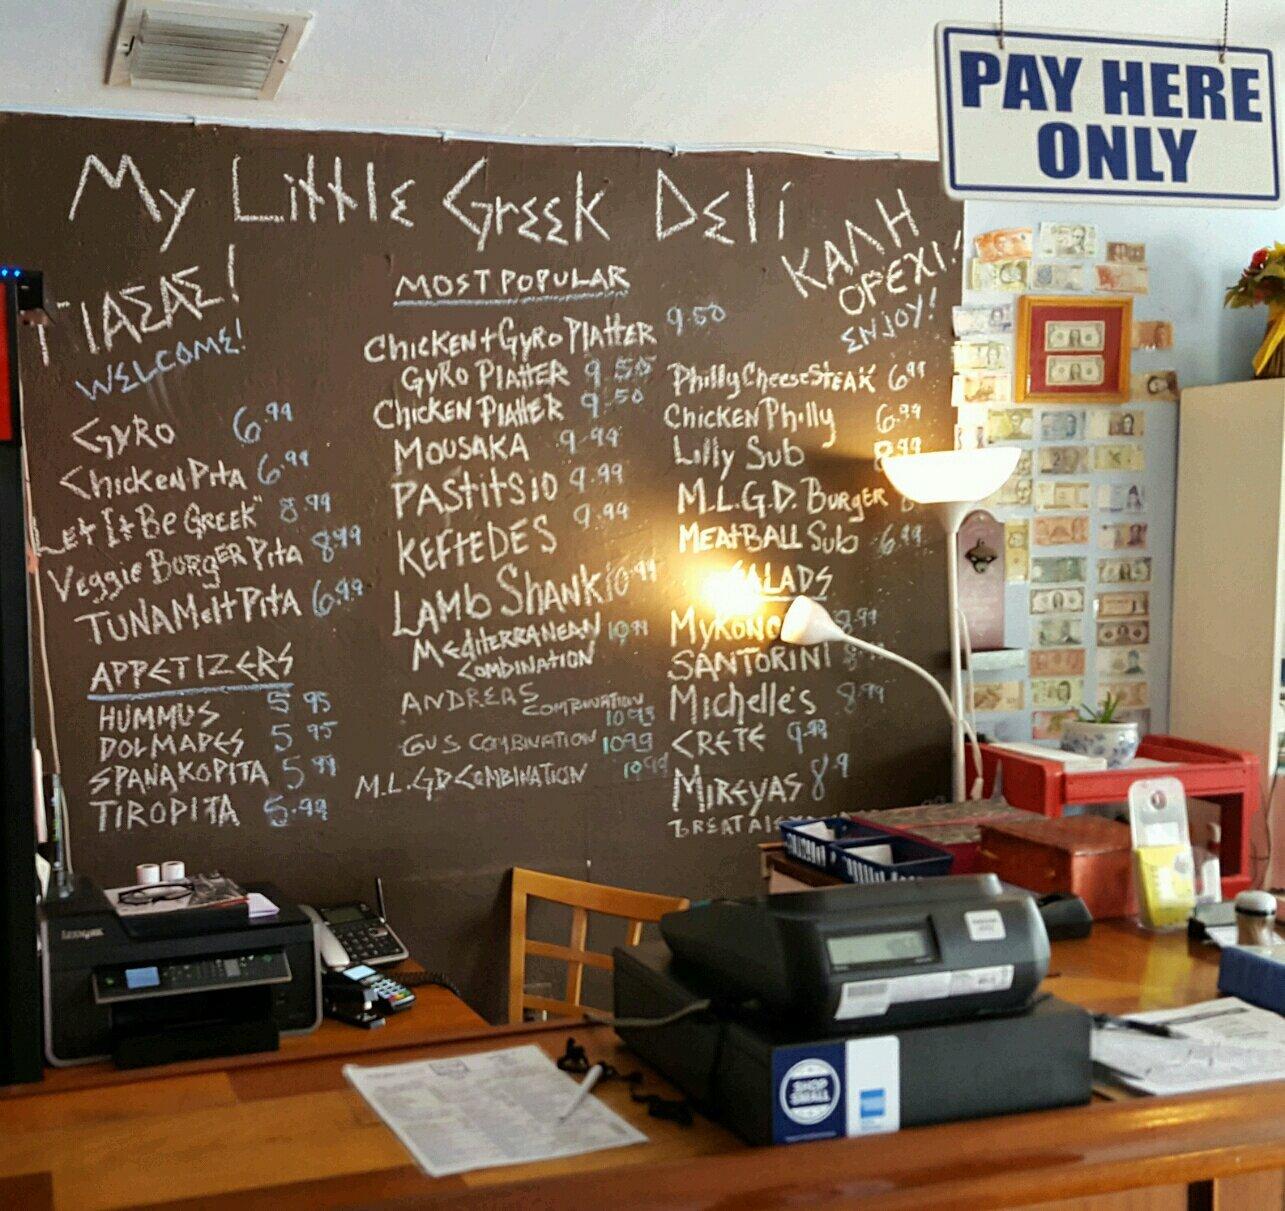 PAY HERE
ONLY
My Little Greek Deli
ΓΙΑΣΑΣ!
WELCOME!
GYRO 6.99
Chicken Pita 6.99
Let It Be Greek" 8.99
Veggie Burger Pita 8.99
TUNA Melt Pita 6.99
APPETIZERS
HUMMUS 5.95
DOLMADES 5.95
SPANAKOPITA 5.99
TIROPITA 5.99
MOST POPULAR
Chicken + Gyro Platter 9.50
Gyro Platter 9.50
Chicken Platter 9.50
MOUSAKA 9.99
PAStitsio 9.99
KEFTEDES 9.99
LAMB Shank 10.99
MEDITERRANEAN 10.99
COMBINATION
ANDREAS
COMBINATION
10.99
GUS COMBINATION 10.99
M.L.GD COMBINATION 10.99
ΚΑΛΗ
ΟΡΕΧΙ!
ENJOY!
Philly Cheese Steak 6.99
Chicken Philly 6.99
Lilly Sub 8.99
M.L.G.D. Burger
MEATBALL Sub 6.99
SALADS
8.99
SANTORINI
Michelle's 8.99
CRETE 9.99
MIREYAS
LEXMARK
SHOP
SMALL